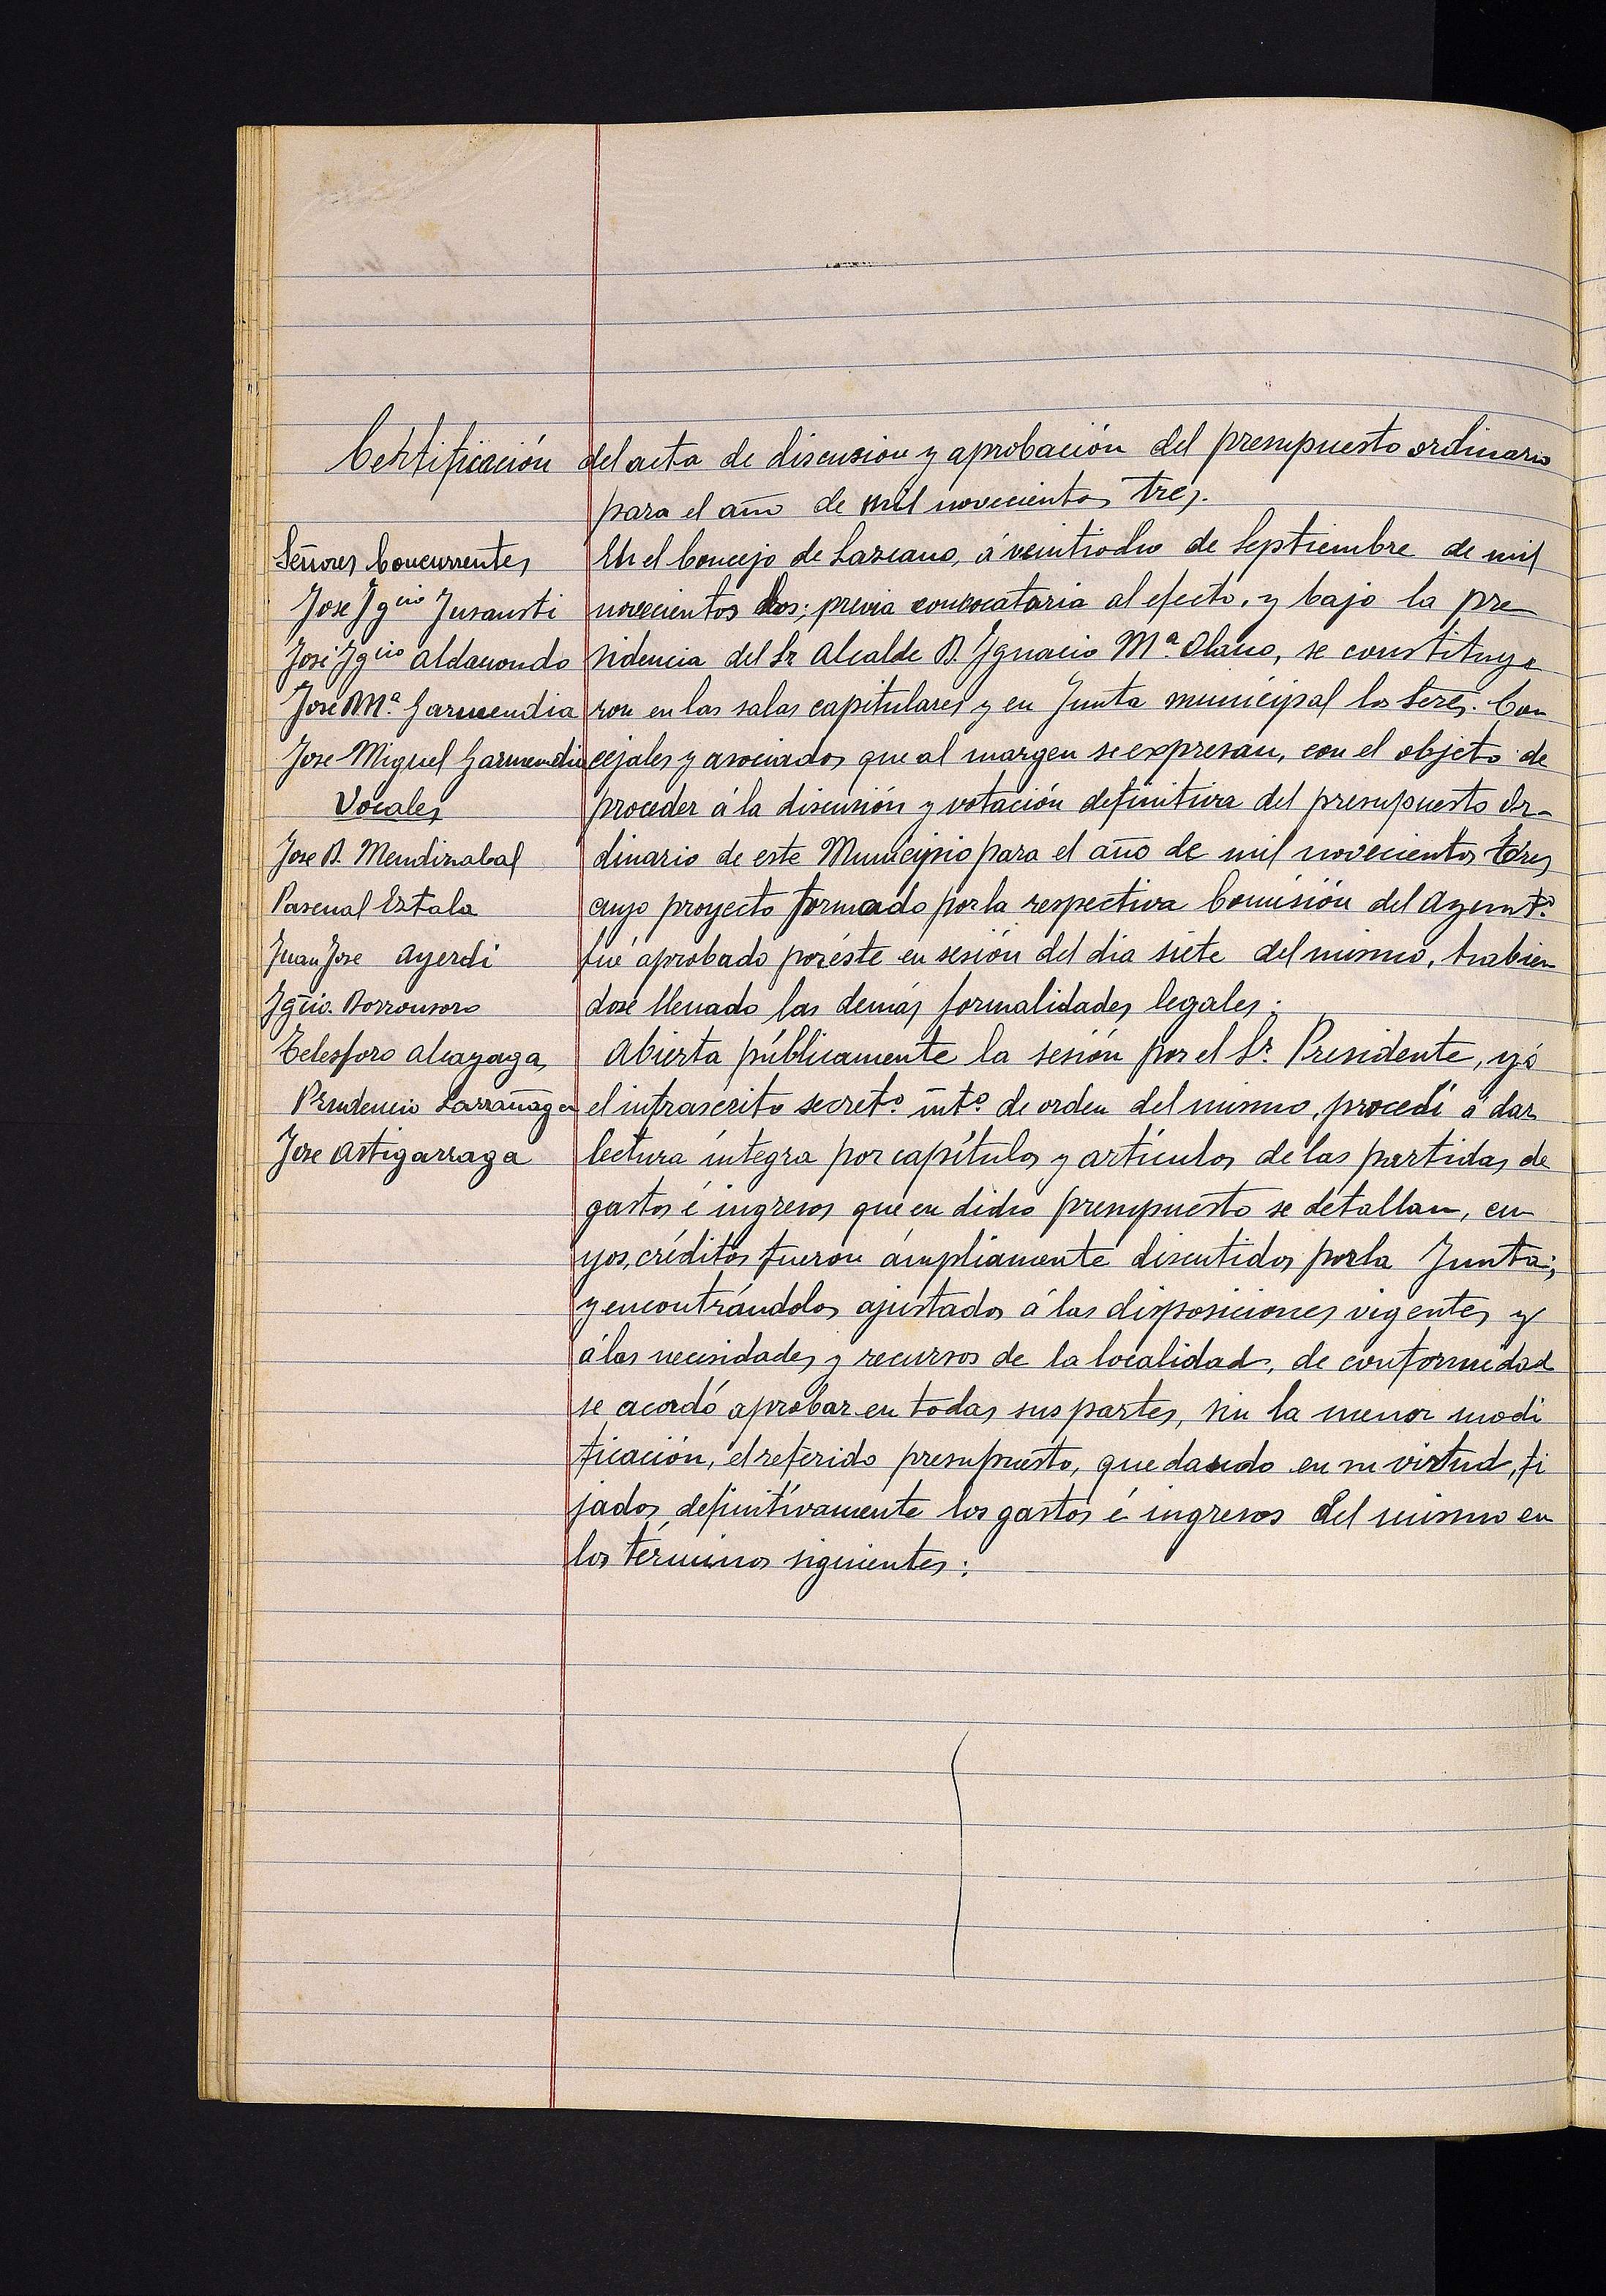 Certificación del acta de discusion y aprobación del presupuesto ordinario
para el año de mil novecientos tres.
Señores Concurrentes
Jose Ygcio Jusausti
José Ygcio Aldasondo
José Mª. Garmendia
Jose Miguel Garmendia
Vocales
Jose B. Mendizabal
Pascual Estala
Juan Jose Ayerdi
Ygcio. Dorronsoro
Telesforo Alcayaga
Prudencio Larrañaga
Jose Astigarraga
En el Concejo de Lazcano, á veintiocho de Septiembre de mil
novecientos dos; previa convocataria al efecto, y bajo la pre
sidencia del Sr Alcalde D. Ygnacio Mª. Olano, se constituye
ron en las salas capitulares y en Junta municipal los Sres. Con
cejales y asociados que al margen se expresan, con el objeto de
proceder á la discusión y votación definitiva del presupuesto Or-
dinario de este Municipio para el año de mil novecientos tres
cuyo proyecto formado por la respectiva Comisión del Ayuntº.
fué aprobado por éste en sesión del dia siete del mismo, habien
dose llenado las demás formalidades legales;
Abierta públicamente la sesión por el Sr. Presidente, yó
el infrascrito secretº. intº. de orden del mismo, procedí á dar
lectura íntegra por capítulos y artículos de las partidas de
gastos é ingresos que en dicho presupuesto se detallan, cu
yos créditos fueron ámpliamente discutidos por la Junta;
y encontrándolos ajustados á las disposiciones vigentes y
á las necesidades y recursos de la localidad, de conformidad
se acordó aprobar en todas sus partes, sin la menor modi
ficación, el referido presupuesto, quedando en su virtud, fi
jados definitívamente los gastos é ingresos del mismo en
los términos siguientes: